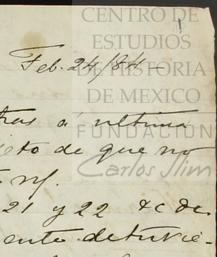 CENTRO DE
ESTUDIOS
DE HISTORIA
DE MEXICO
FUNDACIÓN
Carlos Slim
1
Feb. 24/84 —
tras a ultima
de que no
21 y 22 &c de
ente detuvie-